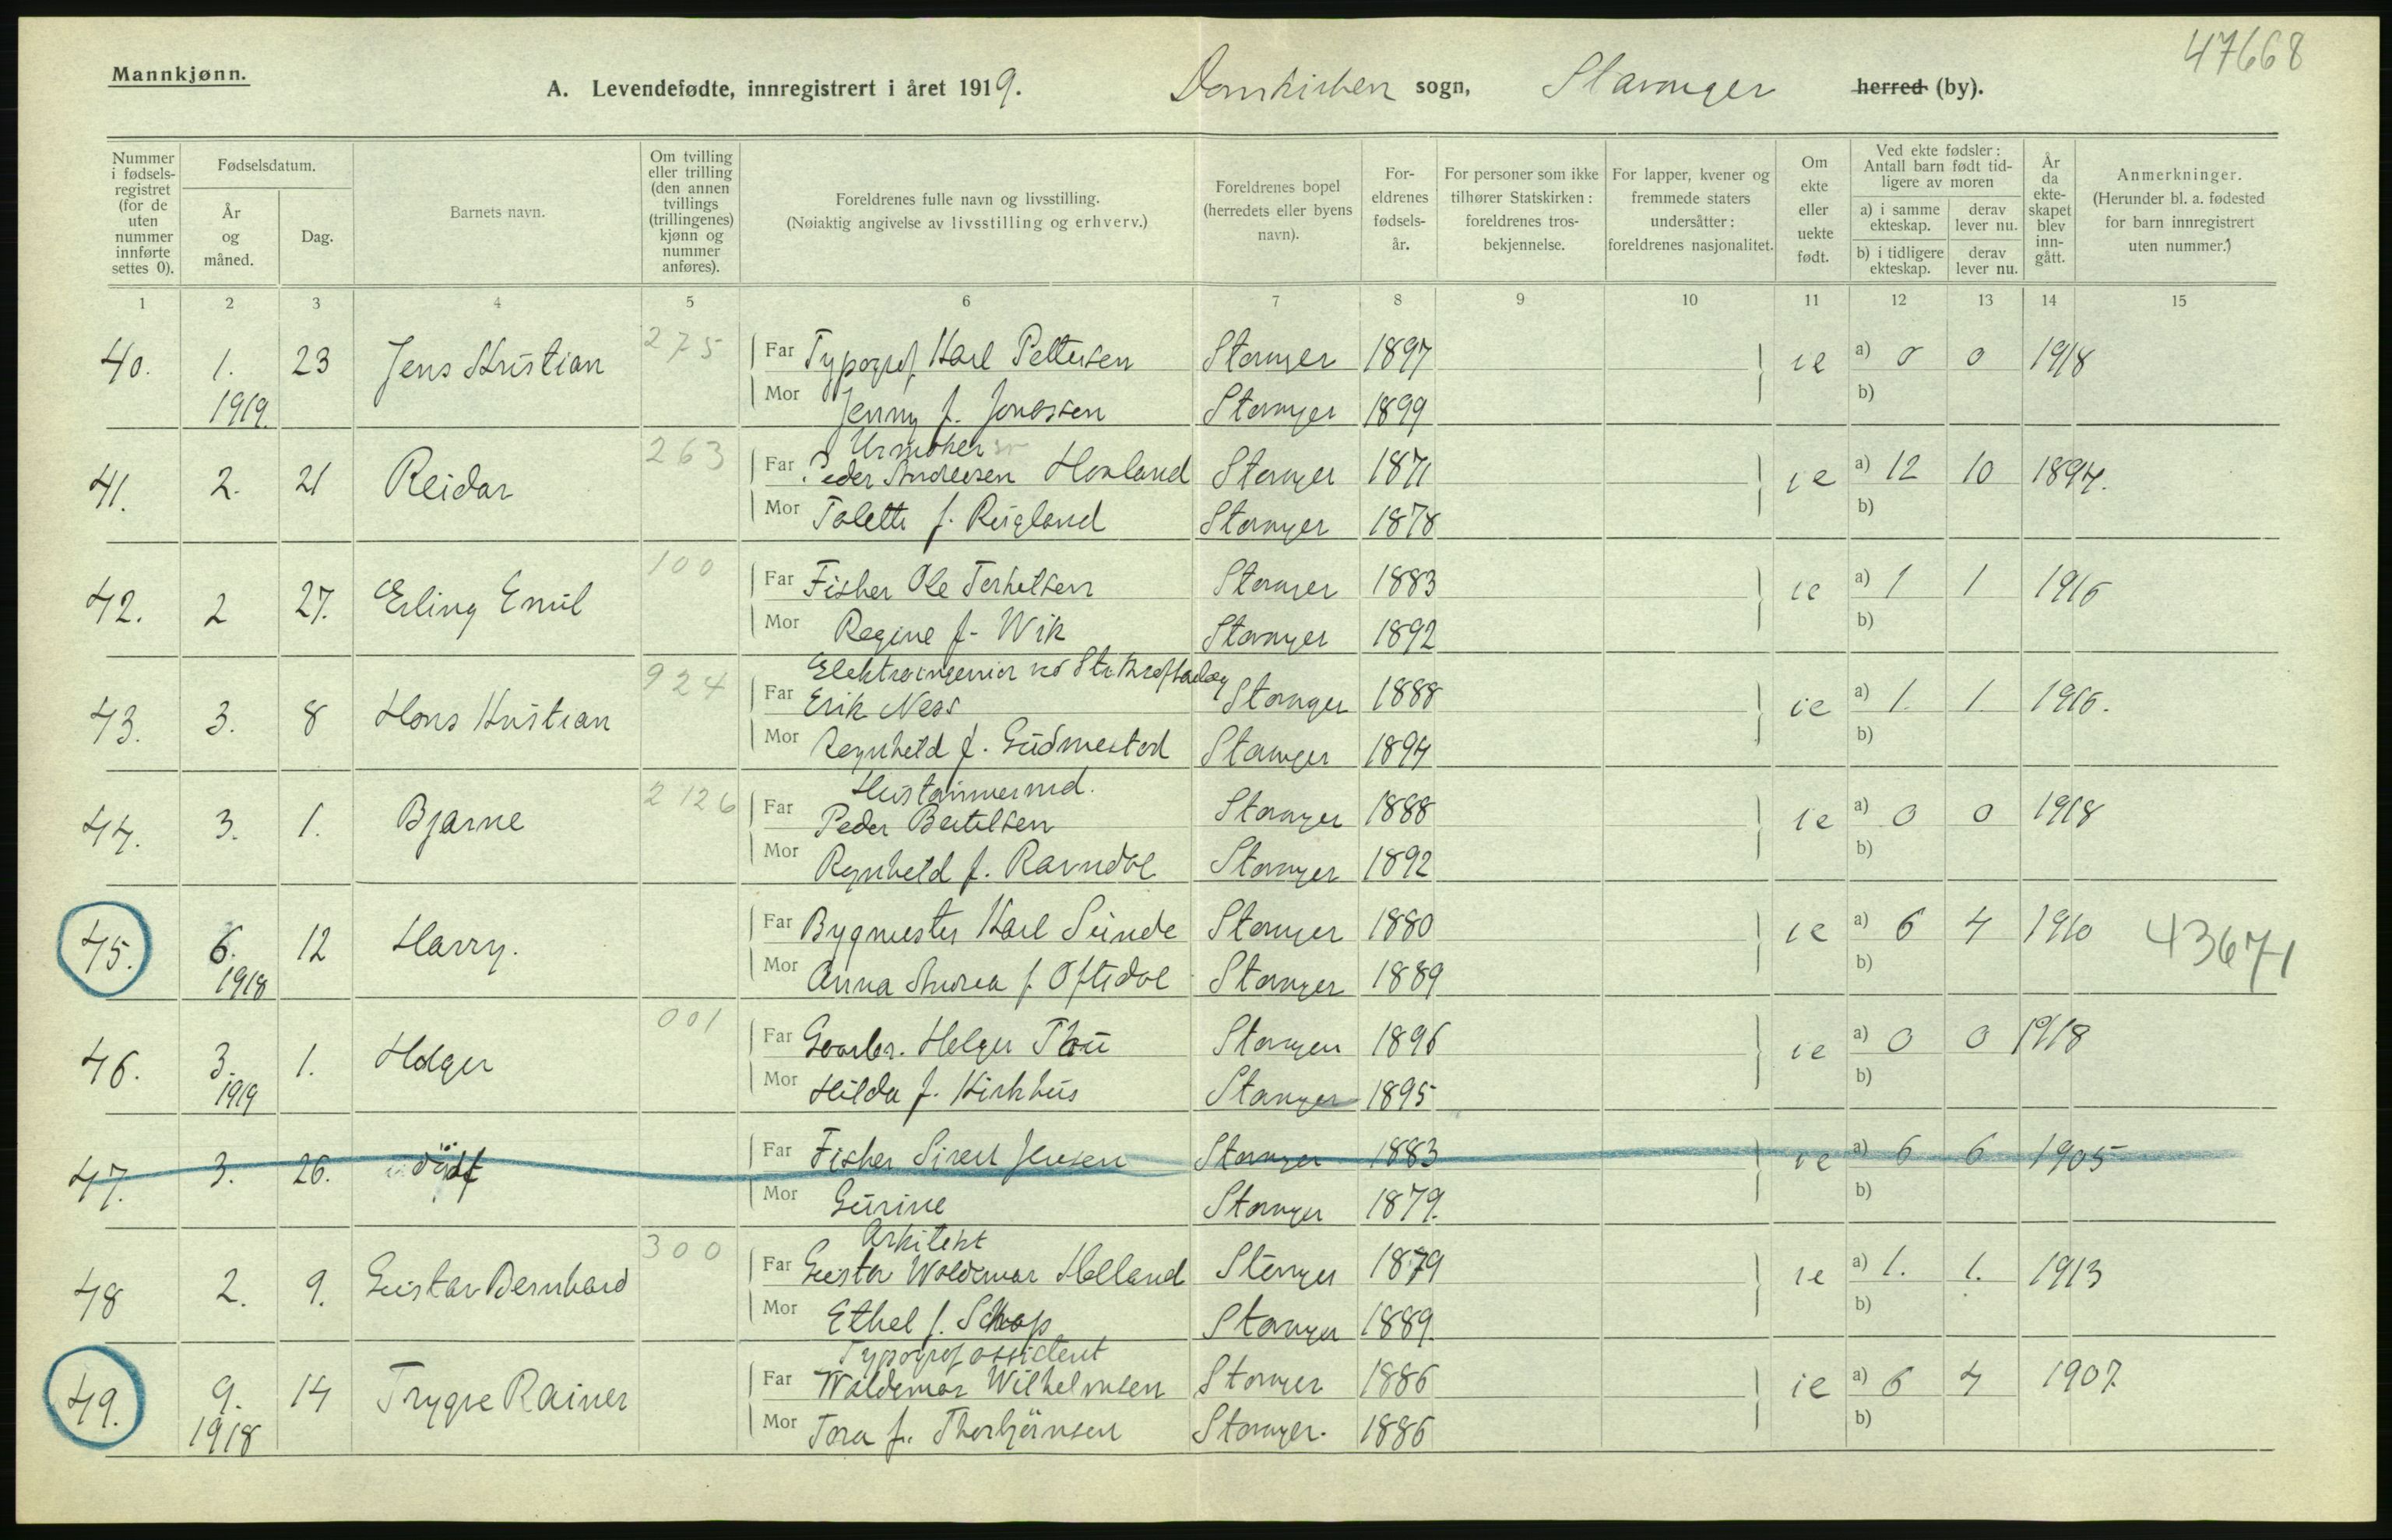 47668
Mannkjønn.
A. Levendefødte, innregistrert i året 1919. Domkirken sogn, Stavanger herred (by).
Nummer i fødsels-registret (for de uten nummer innførte settes 0).
Fødselsdatum.
År og måned.
Dag.
Barnets navn.
Om tvilling eller trilling (den annen tvillings (trillingenes) kjønn og nummer anføres).
Foreldrenes fulle navn og livsstilling.
(Nøiaktig angivelse av livsstilling og erhverv.)
Foreldrenes bopel (herredets eller byens navn).
For-eldrenes fødsels-år.
For personer som ikke tilhører Statskirken: foreldrenes tros-bekjennelse.
For lapper, kvener og fremmede staters undersåtter: foreldrenes nasjonalitet.
Om ekte eller uekte født.
Ved ekte fødsler: Antall barn født tid-ligere av moren
a) i samme ekteskap.
derav lever nu.
b) i tidligere ekteskap.
derav lever nu.
År da ekte-skapet blev inn-gått.
Anmerkninger.
(Herunder bl. a. fødested for barn innregistrert uten nummer.)
1 2 3 4 5 6 7 8 9 10 11 12 13 14 15
40. 1. 23 Jens Kristian 275 Far Typograf Karl Pettersen Stavanger 1897 ie a) 0 0 1918
1919. Mor Jenny f. Jonassen Stavanger 1899 b)
Urmaker
41. 2. 21 Reidar 263 Far Peder Andreesen Hovland Stavanger 1871 ie a) 12 10 1897.
Mor Talette f. Reigland Stavanger 1878 b)
42. 2 27. Erling Emil 100 Far Fisker Ole Terkelsen Stavanger 1883 ie a) 1 1 1916
Mor Regine f. Wik Stavanger 1892 b)
Elektroingeniør ved St.
43. 3. 8 Hans Kristian 924 Far Erik Ness Stavanger 1888 ie a) 1. 1. 1916.
Mor Ragnhild f. Gudmestad Stavanger 1894 b)
Hustømmermd.
44. 3. 1. Bjarne 2126 Far Peder Bertelsen Stavanger 1888 ie a) 0 0 1918
Mor Ragnhild f. Ravndal Stavanger 1892 b)
45. 6. 12 Harry. Far Bygmester Karl Sunde Stavanger 1880 ie a) 6 4 1910 43671
1918 Mor Anna Andrea f. Oftedal Stavanger 1889 b)
46. 3. 1. Holger 001 Far Gaarbr. Helger Tou Stavanger 1896 ie a) 0 0 1918
1919 Mor Hilda f. Kirkhus Stavanger 1895 b)
47. 3. 26. udöpt Far Fisker Sivert Jensen Stavanger 1883 ie a) 6 6 1905
Mor Gurine Stavanger 1879. b)
Arkitekt
48 2. 9. Gustav Bernhard 300 Far Gustav Waldemar Helland Stavanger 1879 ie a) 1. 1. 1913
Mor Ethel f. Stavanger 1889. b)
Typograf assistent
49. 9. 14 Trygve Rainer Far Waldemar Wilhelmsen Stavanger 1886 ie a) 6 4 1907.
1918 Mor Tora f. Thorbjörnsen Stavanger. 1886 b)